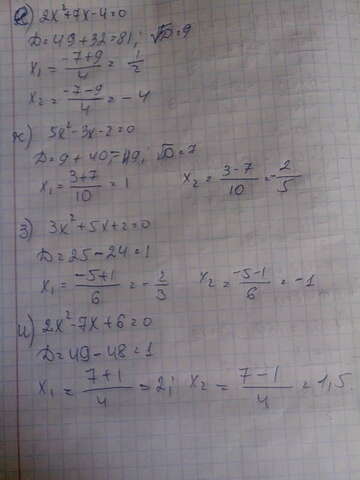 е) 2x²+7x-4=0
D=49+32=81; √D=9
x₁=(-7+9)/4=1/2
x₂=(-7-9)/4=-4
ж) 5x²-3x-2=0
D=9+40=49; √D=7
x₁=(3+7)/10=1 x₂=(3-7)/10=-2/5
з) 3x²+5x+2=0
D=25-24=1
x₁=(-5+1)/6=-2/3 x₂=(-5-1)/6=-1
и) 2x²-7x+6=0
D=49-48=1
x₁=(7+1)/4=2; x₂=(7-1)/4=1,5.